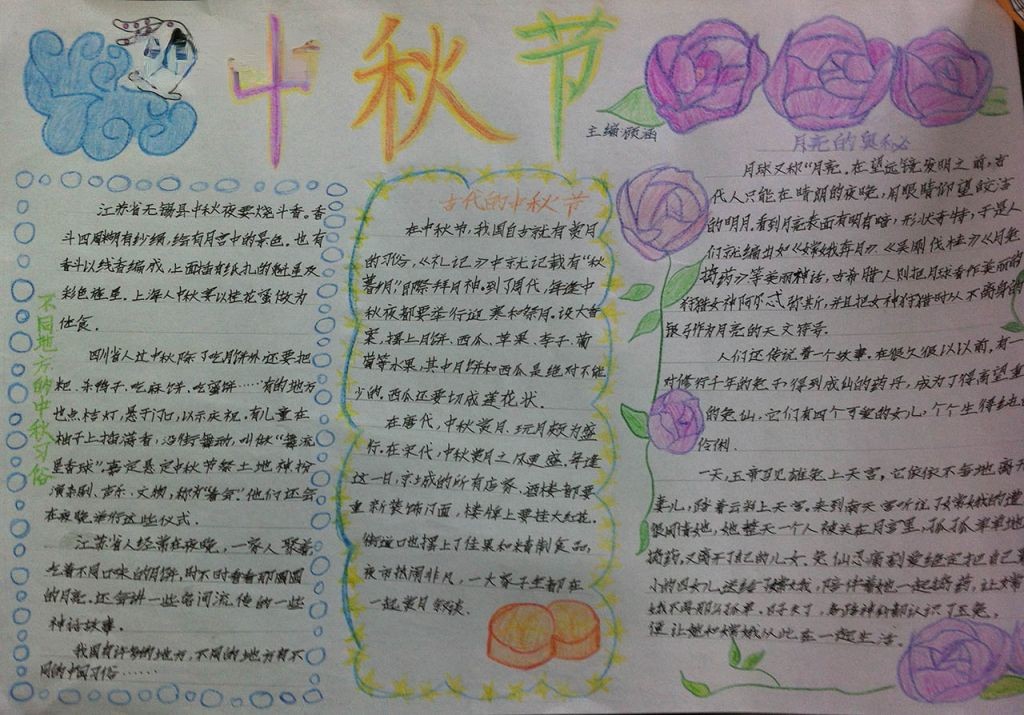 中秋节
主编:顾涵
不同地方的中秋习俗
江苏省无锡县中秋夜要烧斗香。香
斗四周糊有纱绢，绘有月宫中的景色。也有
香斗以线香编成，上面插有纸扎的魁星及
彩色旌星。上海人中秋宴以桂花蜜做为
佐食。
四川省人过中秋除了吃月饼外还要把
粑、杀鸭子、吃麻饼、吃蜜饼……有的地方
也点桔灯，悬于门口，以示庆祝。有儿童在
柚子上插满香，沿街舞动，叫做“舞流
星香球”。嘉定县中秋节祭土地神扮
演杂剧、声乐、文物，称为“看会”他们还会
在夜晚举行这些仪式。
江苏省人经常在夜晚，一家人聚着
吃着不同口味的月饼，时不时看看那圆圆
的月亮，还会讲一些民间流传的一些
神话故事。
我国有许多的地方，不同的地方有不
同的中国习俗……
古代的中秋节
在中秋节，我国自古就有赏月
的习俗，《礼记》中就记载有“秋
暮夕月”即祭拜月神。到了周代，每逢中
秋夜都要举行迎寒和祭月。设大香
案，摆上月饼、西瓜、苹果、李子、葡
萄等水果，其中月饼和西瓜是绝对不能
少的。西瓜还要切成莲花状。
在唐代，中秋赏月、玩月颇为盛
行。在宋代，中秋赏月之风更盛，每逢
这一日，京城的所有店家、酒楼都要
重新装饰门面，楼牌上要挂大红花。
街道口也摆上了佳果和精制食品，
夜市热闹非凡，一大家子坐都在
一起赏月叙谈。
月亮的奥秘
月球又称“月亮。在望远镜发明之前，古
代人只能在晴朗的夜晚，用眼睛仰望皎洁
的明月。看到月亮表面有明有暗，形状奇特，于是人
们就编出如《嫦娥奔月》《吴刚伐桂》《月兔
捣药》等美丽神话，古希腊人则把月球看作美丽的
狩猎女神阿尔忒弥斯，并且把女神狩猎时从不离身的
银弓作为月亮的天文符号。
人们还传说着一个故事，在很久很久以前，有一
对修行千年的兔子，得到成仙的药丹，成为了德高望重
的兔仙，它们有四个可爱的女儿，个个生得
伶俐。
一天，玉帝召见雄兔上天宫，它依依不舍地离开
妻儿，踏着云彩上天宫。来到南天宫听说了嫦娥的遭
很同情她，她整天一个人被关在月宫里，孤孤单单地
捣药，又离开了自己的儿女。兔仙忍痛割爱绝定把自己
小的四女儿送给了嫦娥，陪伴着她一起捣药，让嫦
娥不再那么孤单。日子久了，各路神仙都认识了玉兔，
便让她和嫦娥从此在一起生活。